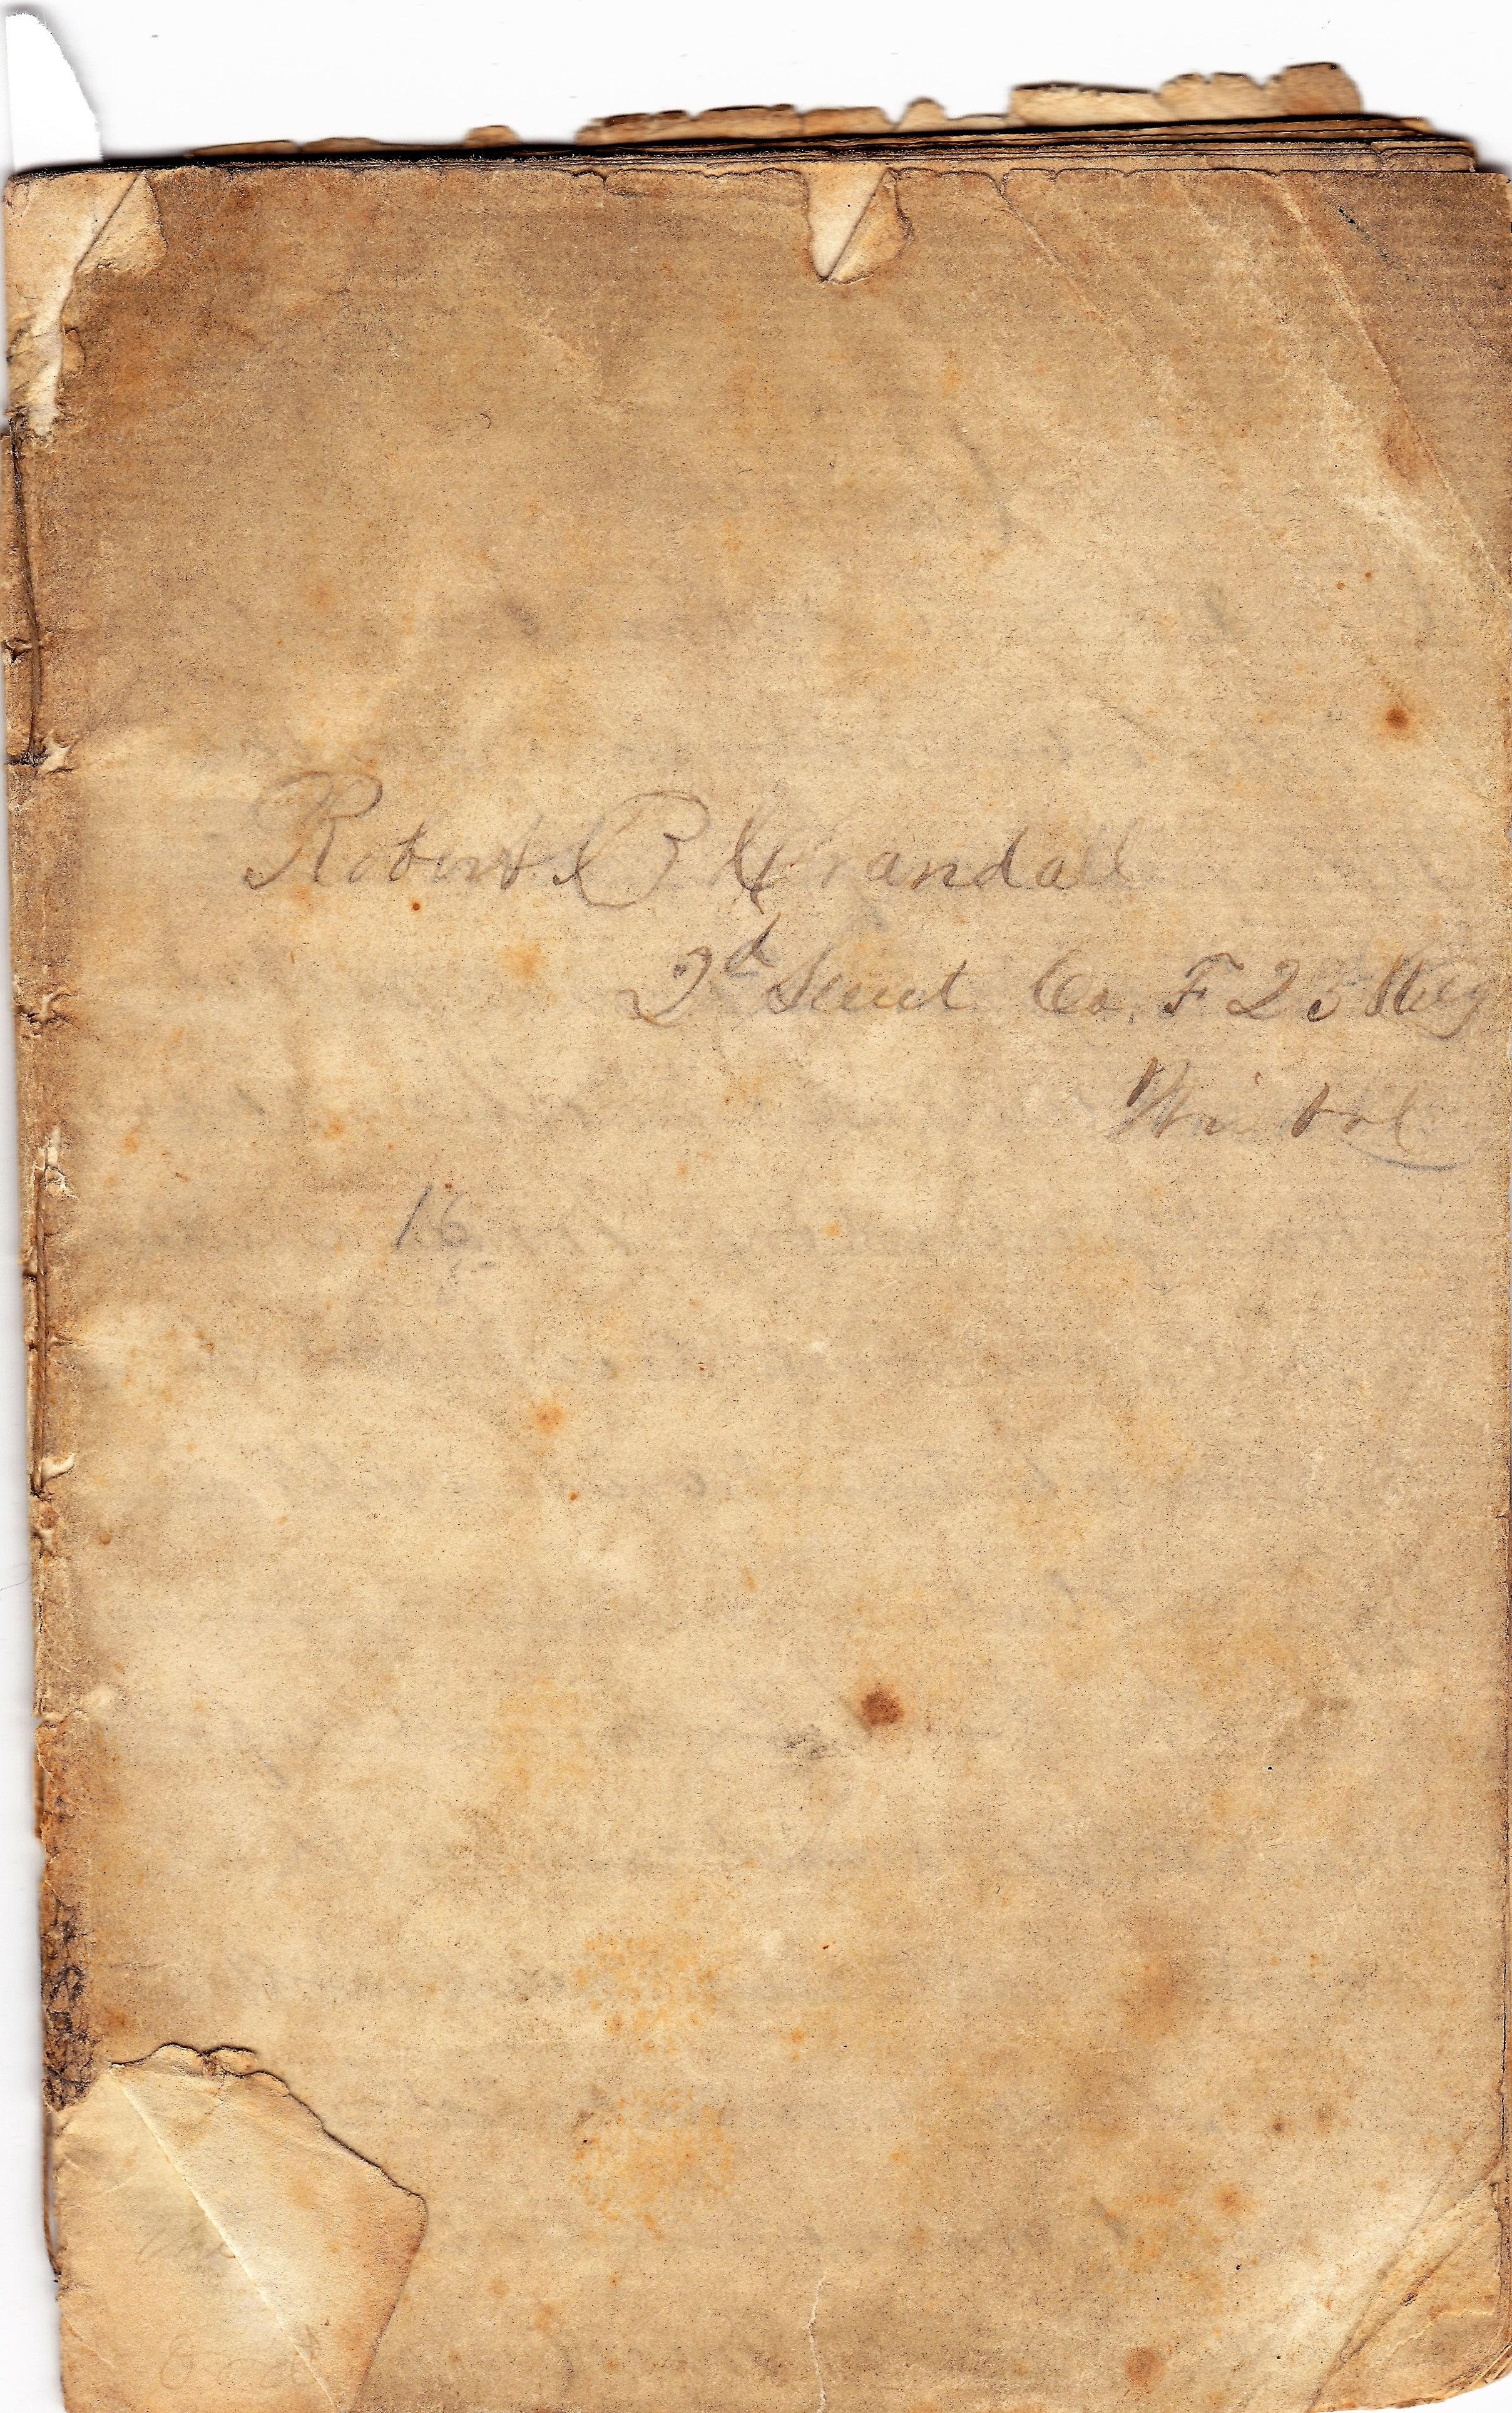 Robert P Crandall
2d Lieut Co. F 25 Reg
Wis Vol
16